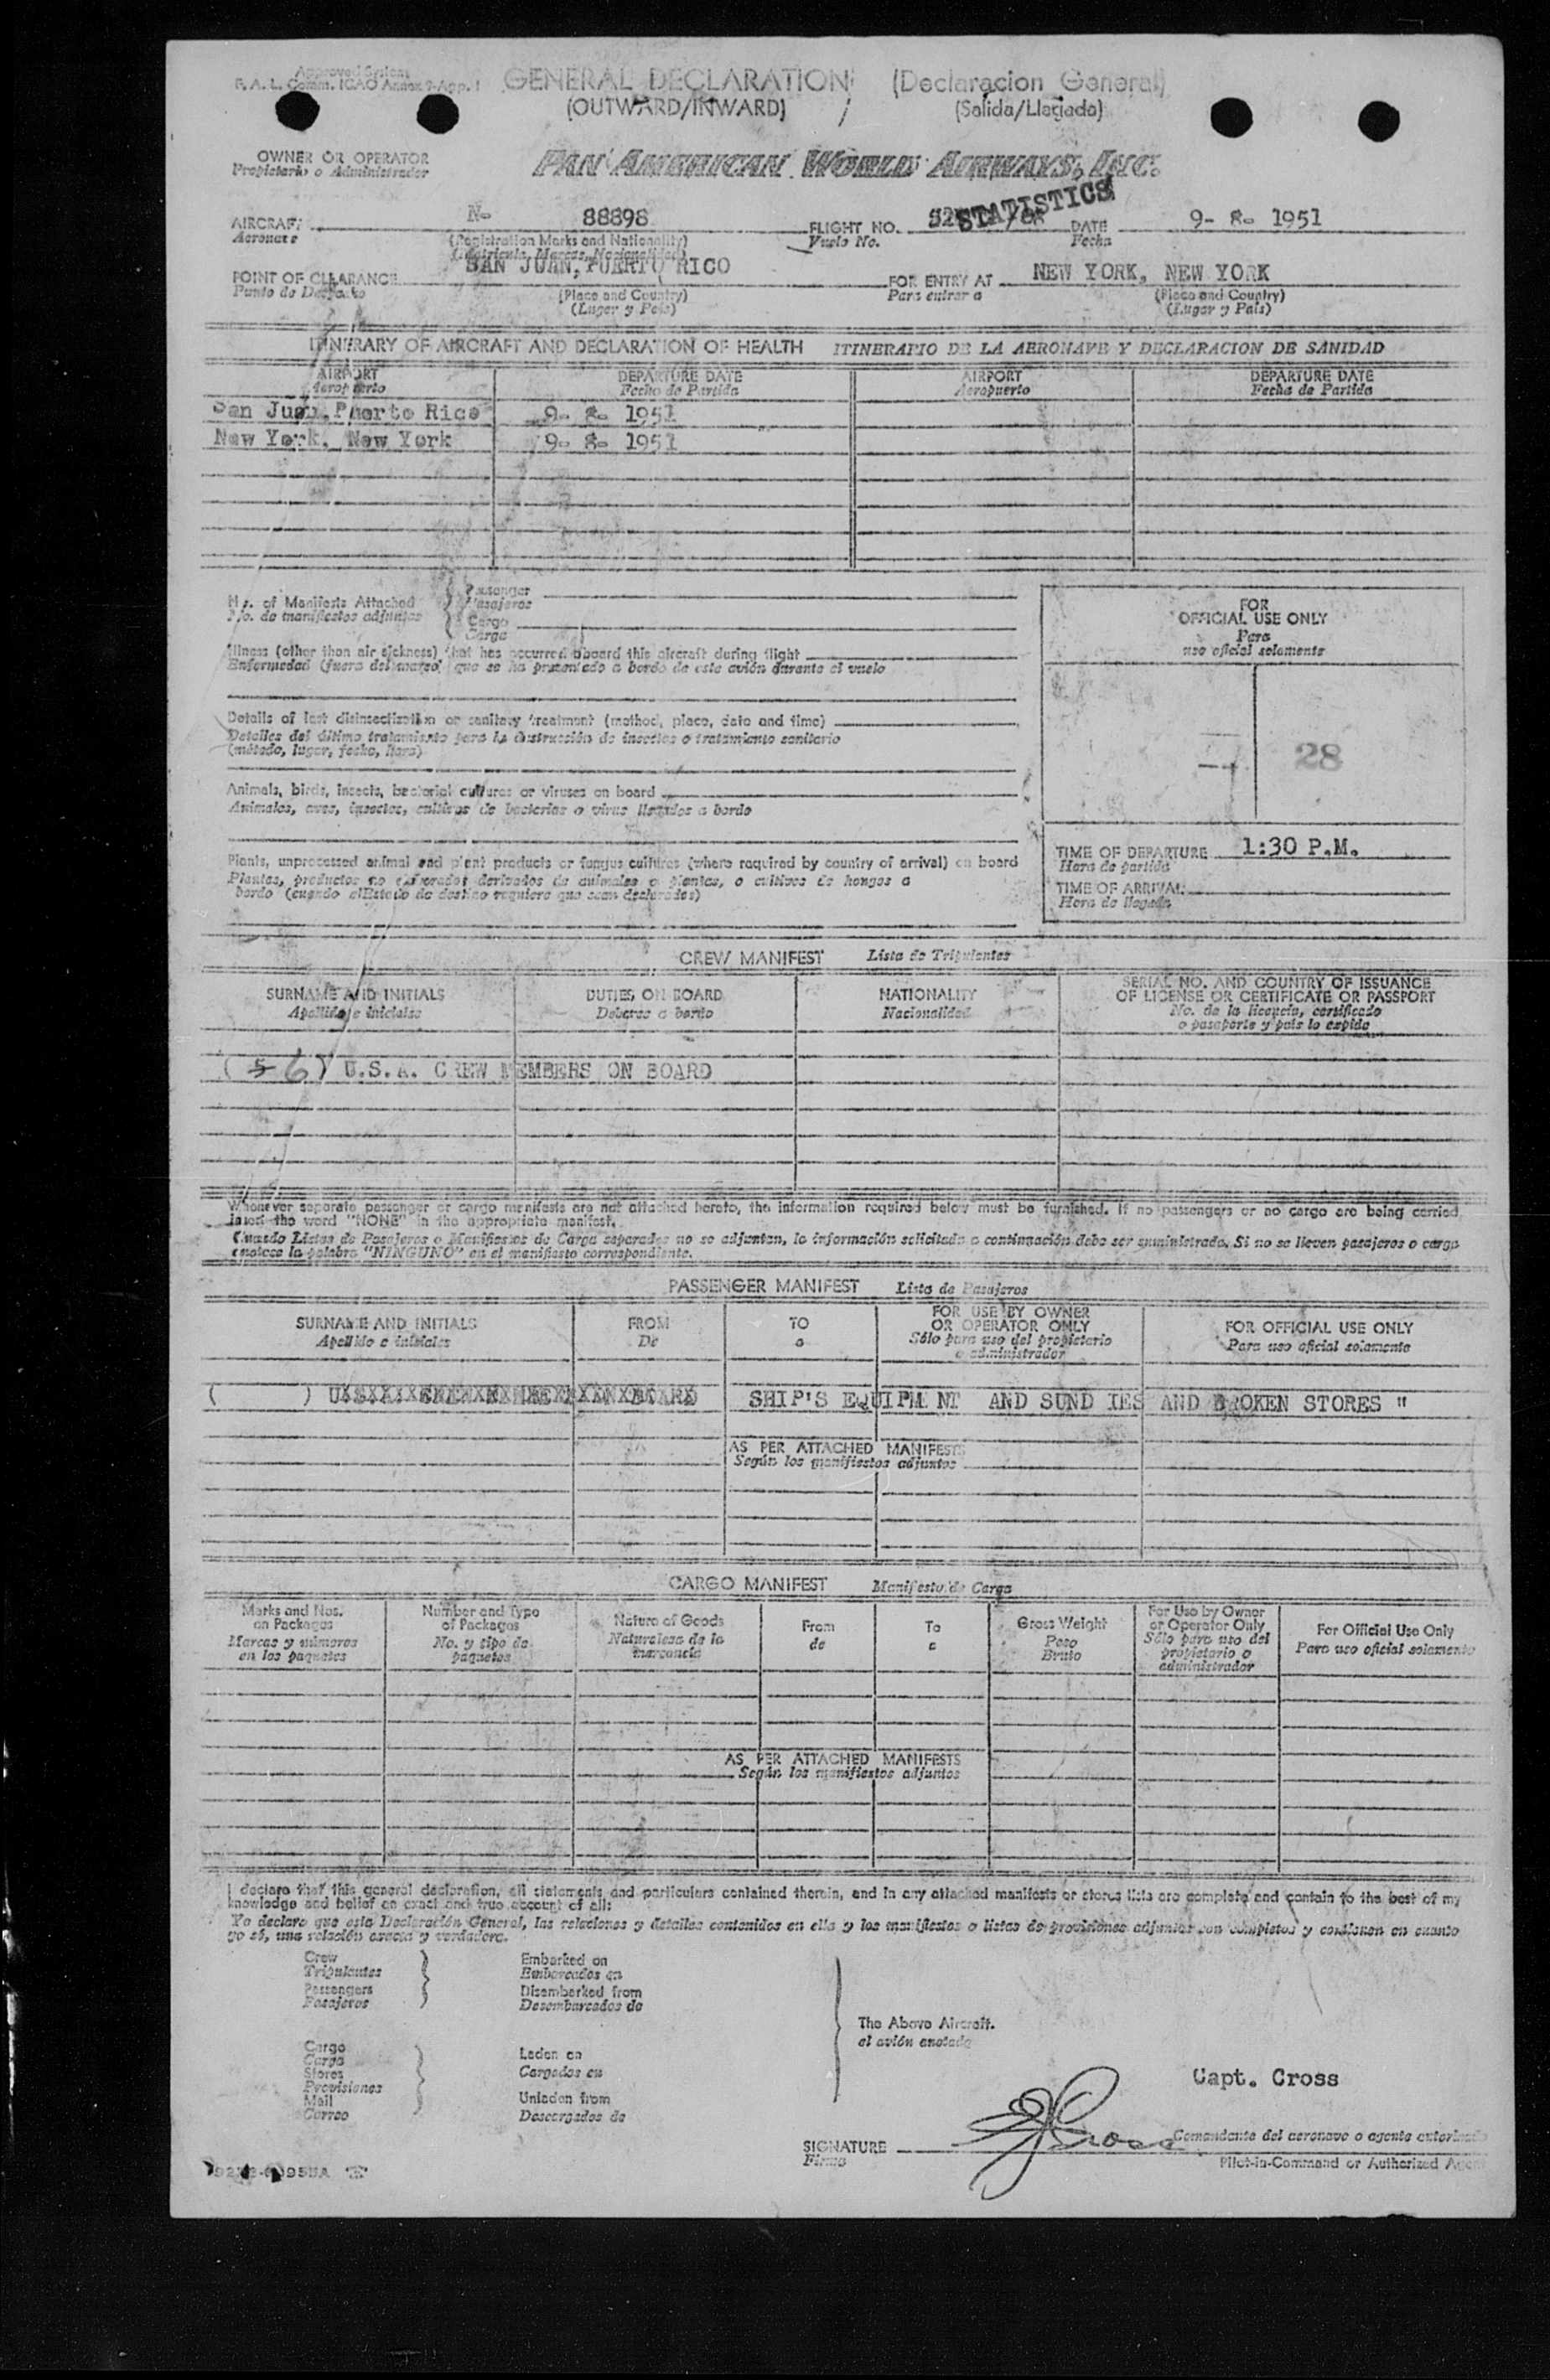 Approved System
F. A. L. Comm. ICAO Annex 9-App. 1
GENERAL DECLARATION (Declaracion General)
(OUTWARD/INWARD) (Salida/Llegada)
OWNER OR OPERATOR
Propietario o Administrador
PAN AMERICAN WORLD AIRWAYS, INC.
STATISTICS
AIRCRAFT N- 88898 FLIGHT NO. DATE 9- 8- 1951
Aeronave (Registration Marks and Nationality) Vuelo No. Fecha
SAN JUAN, PUERTO RICO
POINT OF CLEARANCE FOR ENTRY AT NEW YORK, NEW YORK
Punto de Despacho (Place and Country) Para entrar a (Place and Country)
(Lugar y País) (Lugar y País)
ITINERARY OF AIRCRAFT AND DECLARATION OF HEALTH ITINERARIO DE LA AERONAVE Y DECLARACION DE SANIDAD
AIRPORT DEPARTURE DATE AIRPORT DEPARTURE DATE
Aeropuerto Fecha de Partida Aeropuerto Fecha de Partida
San Juan, Puerto Rico 9- 8- 1951
New York, New York 9- 8- 1951
No. of Manifests Attached Passenger
No. de manifiestos adjuntos Pasajeros
Cargo
Carga
FOR
OFFICIAL USE ONLY
Para
uso oficial solamente
Illness (other than air sickness) that has occurred aboard this aircraft during flight
Enfermedad (fuera del mareo) que se ha presentado a bordo de este avión durante el vuelo
Details of last disinsectization or sanitary treatment (method, place, date and time)
Detalles del último tratamiento para la destrucción de insectos o tratamiento sanitario
(método, lugar, fecha, hora)
28
Animals, birds, insects, bacterial cultures or viruses on board
Animales, aves, insectos, cultivos de bacterias o virus llevados a bordo
Plants, unprocessed animal and plant products or fungus cultures (where required by country of arrival) on board
Plantas, productos no elaborados derivados de animales o plantas, o cultivos de hongos a
bordo (cuando el Estado de destino requiera que sean declarados)
TIME OF DEPARTURE 1:30 P.M.
Hora de partida
TIME OF ARRIVAL
Hora de llegada
CREW MANIFEST Lista de Tripulantes
SURNAME AND INITIALS DUTIES ON BOARD NATIONALITY SERIAL NO. AND COUNTRY OF ISSUANCE
OF LICENSE OR CERTIFICATE OR PASSPORT
Apellido e iniciales Deberes a bordo Nacionalidad No. de la licencia, certificado
o pasaporte y país lo expide
( 5 6 ) U.S.A. CREW MEMBERS ON BOARD
Whenever separate passenger or cargo manifests are not attached hereto, the information required below must be furnished. If no passengers or no cargo are being carried
insert the word "NONE" in the appropriate manifest.
Cuando Listas de Pasajeros o Manifiestos de Carga separados no se adjuntan, la información solicitada a continuación debe ser suministrada. Si no se lleven pasajeros o carga
anotese la palabra "NINGUNO" en el manifiesto correspondiente.
PASSENGER MANIFEST Lista de Pasajeros
SURNAME AND INITIALS FROM TO FOR USE BY OWNER
OR OPERATOR ONLY FOR OFFICIAL USE ONLY
Apellido e iniciales De a Sólo para uso del propietario
o administrador Para uso oficial solamente
( ) SHIP'S EQUIPM NT AND SUND IES AND BROKEN STORES "
AS PER ATTACHED MANIFESTS
Según los manifiestos adjuntos
CARGO MANIFEST Manifesto de Carga
Marks and Nos.
on Packages
Marcas y números
en los paquetes
Number and Type
of Packages
No. y tipo de
paquetes
Nature of Goods
Naturaleza de la
mercancía
From
de
To
a
Gross Weight
Peso
Bruto
For Use by Owner
or Operator Only
Sólo para uso del
propietario o
administrador
For Official Use Only
Para uso oficial solamente
AS PER ATTACHED MANIFESTS
Según los manifiestos adjuntos
I declare that this general declaration, all statements and particulars contained therein, and in any attached manifests or stores lists are complete and contain to the best of my
knowledge and belief an exact and true account of all:
Yo declaro que esta Declaración General, las relaciones y detalles contenidos en ella y los manifiestos o listas de provisiones adjuntas son completos y contienen en cuanto
yo sé, una relación exacta y verdadera.
Crew
Tripulantes
Passengers
Pasajeros
Embarked on
Embarcados en
Disembarked from
Desembarcados de
The Above Aircraft.
el avión anotado
Cargo
Carga
Stores
Provisiones
Mail
Correo
Laden on
Cargados en
Unladen from
Descargados de
Capt. Cross
SIGNATURE Cross
Firma
Comandante del aeronave o agente autorizado
Pilot-in-Command or Authorized Agent